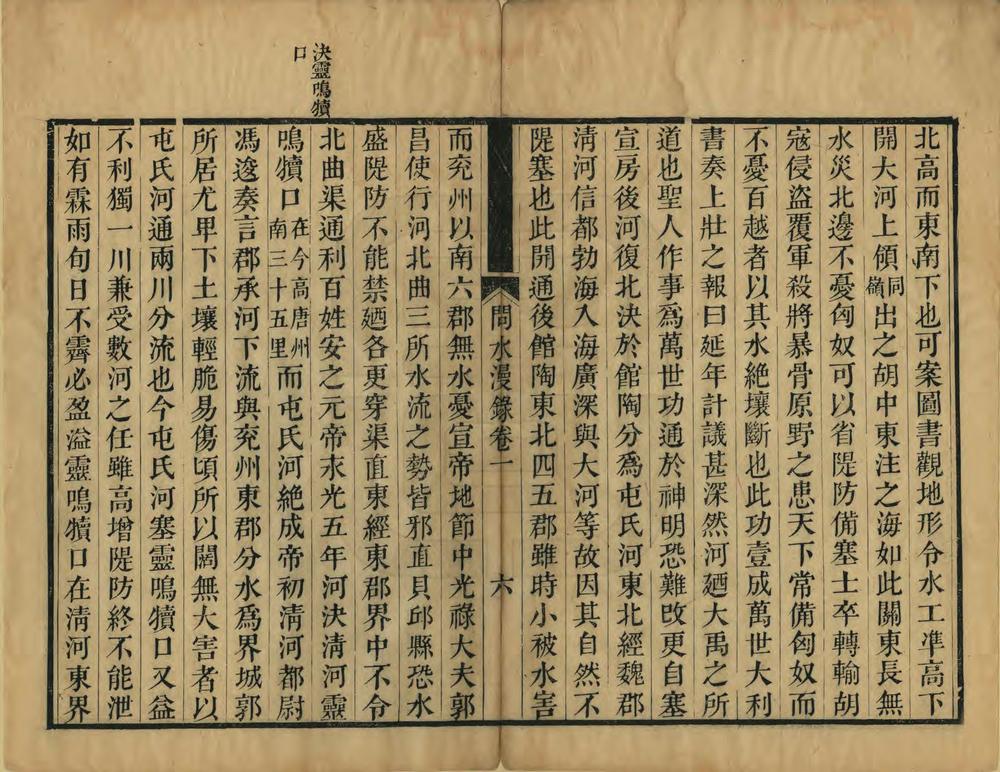 北高而東南下也可案圖書觀地形令水工準高下
開大河上領同嶺出之胡中東注之海如此關東長無
水災北邊不憂匈奴可以省隄防備塞士卒轉輸胡
寇侵盜覆軍殺將暴骨原野之患天下常備匈奴而
不憂百越者以其水絶壤斷也此功壹成萬世大利
書奏上壯之報曰延年計議甚深然河廼大禹之所
道也聖人作事爲萬世功通於神明恐難改更自塞
宣房後河復北決於館陶分爲屯氏河東北經魏郡
清河信都勃海入海廣深與大河等故因其自然不
隄塞也此開通後館陶東北四五郡雖時小被水害
問水漫錄卷一 六
而兖州以南六郡無水憂宣帝地節中光祿大夫郭
昌使行河北曲三所水流之勢皆邪直貝邱縣恐水
盛隄防不能禁廼各更穿渠直東經東郡界中不令
北曲渠通利百姓安之元帝永光五年河決清河靈
鳴犢口在今高唐州南三十五里而屯氏河絶成帝初清河都尉
馮逡奏言郡承河下流與兖州東郡分水爲界城郭
所居尤卑下土壤輕脆易傷頃所以闊無大害者以
屯氏河通兩川分流也今屯氏河塞靈鳴犢口又益
不利獨一川兼受數河之任雖高增隄防終不能泄
如有霖雨旬日不霽必盈溢靈鳴犢口在清河東界
決靈鳴犢
口